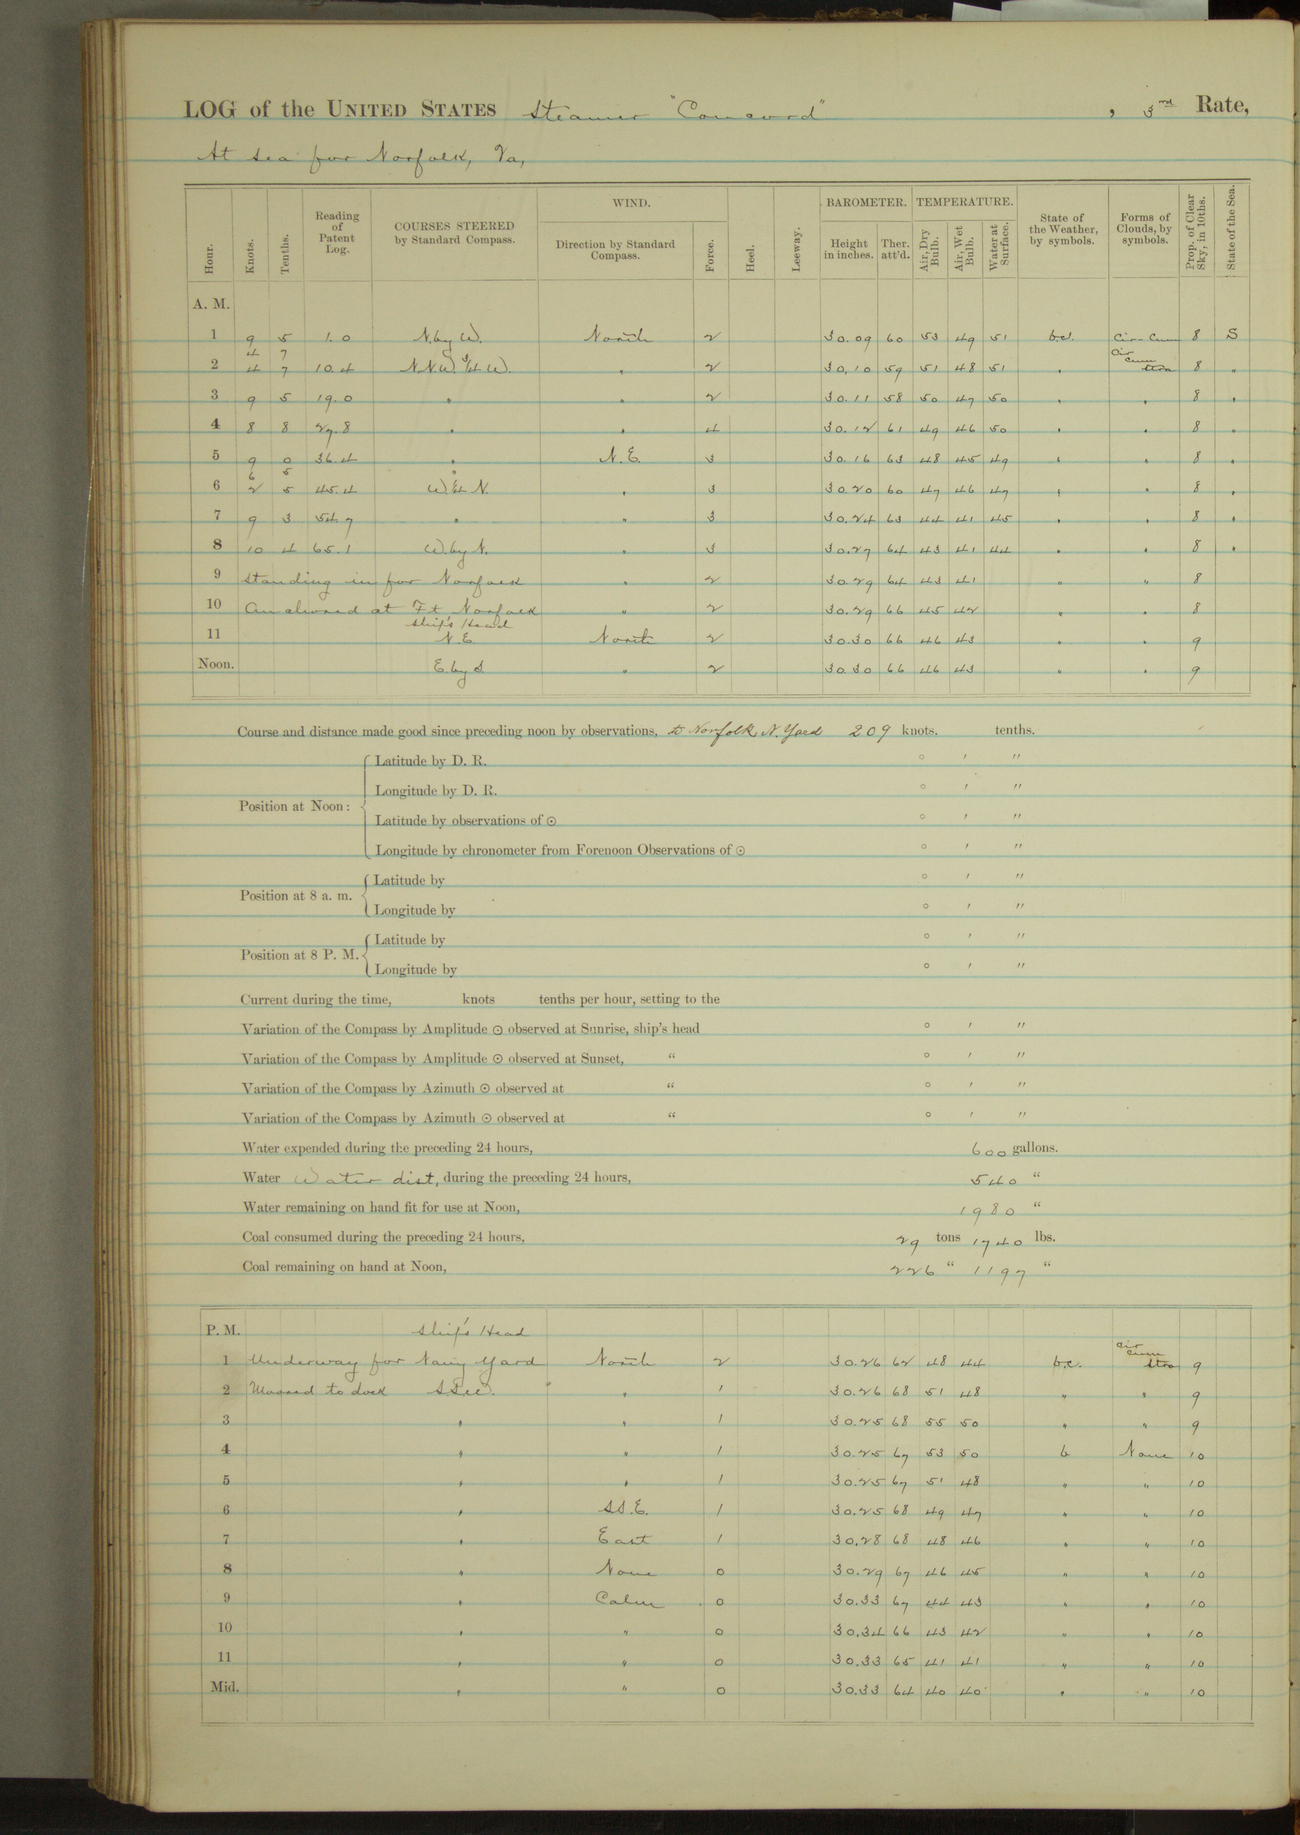 LOG of the UNITED STATES Steamer "Concord", 3rd Rate,
At sea for Norfolk, Va,
Hour. Knots. Tenths. Reading of Patent Log. COURSES STEERED by Standard Compass. WIND. Direction by Standard Compass. Force. Heel. Leeway. BAROMETER. Height in inches. Ther. att'd. TEMPERATURE. Air, Dry Bulb. Air, Wet Bulb. Water at Surface. State of the Weather, by symbols. Forms of Clouds, by symbols. Prop. of Clear Sky, in 10ths. State of the Sea.
A. M.
1 9 5 1.0 N. by W. North 2 30.09 60 53 49 51 b.c. Cir-Cum 8 S
4 7 Cir
2 4 7 10.4 N.N.W. 3/4 W. " 2 30.10 59 51 48 51 " cum stra 8 "
3 9 5 19.0 " " 2 30.11 58 50 47 50 " " 8 "
4 8 8 27.8 " " 4 30.12 61 49 46 50 " " 8 "
5 9 0 36.4 " N.E. 3 30.16 63 48 45 49 " " 8 "
6 5 "
6 2 5 45.4 W 1/4 N. " 3 30.20 60 47 46 47 " " 8 "
7 9 3 54.7 " " 3 30.24 63 44 41 45 " " 8 "
8 10 4 65.1 W. by N. " 3 30.27 64 43 41 44 " " 8 "
9 Standing in for Norfolk " 2 30.29 64 43 41 " " 8
10 Anchored at Ft. Norfolk " 2 30.29 66 45 42 " " 8
Ship's Head
11 N.E. North 2 30.30 66 46 43 " " 9
Noon. E. by S " 2 30.30 66 46 43 " " 9
Course and distance made good since preceding noon by observations, to Norfolk N. Yard 209 knots. tenths.
Latitude by D. R. ° ′ ″
Longitude by D. R. ° ′ ″
Position at Noon:
Latitude by observations of ☉ ° ′ ″
Longitude by chronometer from Forenoon Observations of ☉ ° ′ ″
Position at 8 a. m. Latitude by ° ′ ″
Longitude by ° ′ ″
Position at 8 P. M. Latitude by ° ′ ″
Longitude by ° ′ ″
Current during the time, knots tenths per hour, setting to the
Variation of the Compass by Amplitude ☉ observed at Sunrise, ship's head ° ′ ″
Variation of the Compass by Amplitude ☉ observed at Sunset, " ° ′ ″
Variation of the Compass by Azimuth ☉ observed at " ° ′ ″
Variation of the Compass by Azimuth ☉ observed at " ° ′ ″
Water expended during the preceding 24 hours, 600 gallons.
Water Water dist, during the preceding 24 hours, 540 "
Water remaining on hand fit for use at Noon, 1980 "
Coal consumed during the preceding 24 hours, 29 tons 1740 lbs.
Coal remaining on hand at Noon, 226 " 1197 "
P. M. Ship's Head
1 Underway for Navy Yard North 2 30.26 62 48 44 b.c. Cir cum Stra 9
2 Moored to dock SSW. " 1 30.26 68 51 48 " " 9
3 " " 1 30.25 68 55 50 " " 9
4 " " 1 30.25 67 53 50 b None 10
5 " " 1 30.25 67 51 48 " " 10
6 " SS.E. 1 30.25 68 49 47 " " 10
7 " East 1 30.28 68 48 46 " " 10
8 " None 0 30.29 67 46 45 " " 10
9 " Calm 0 30.33 67 44 43 " " 10
10 " " 0 30.34 66 43 42 " " 10
11 " " 0 30.33 65 41 41 " " 10
Mid. " " 0 30.33 64 40 40 " " 10